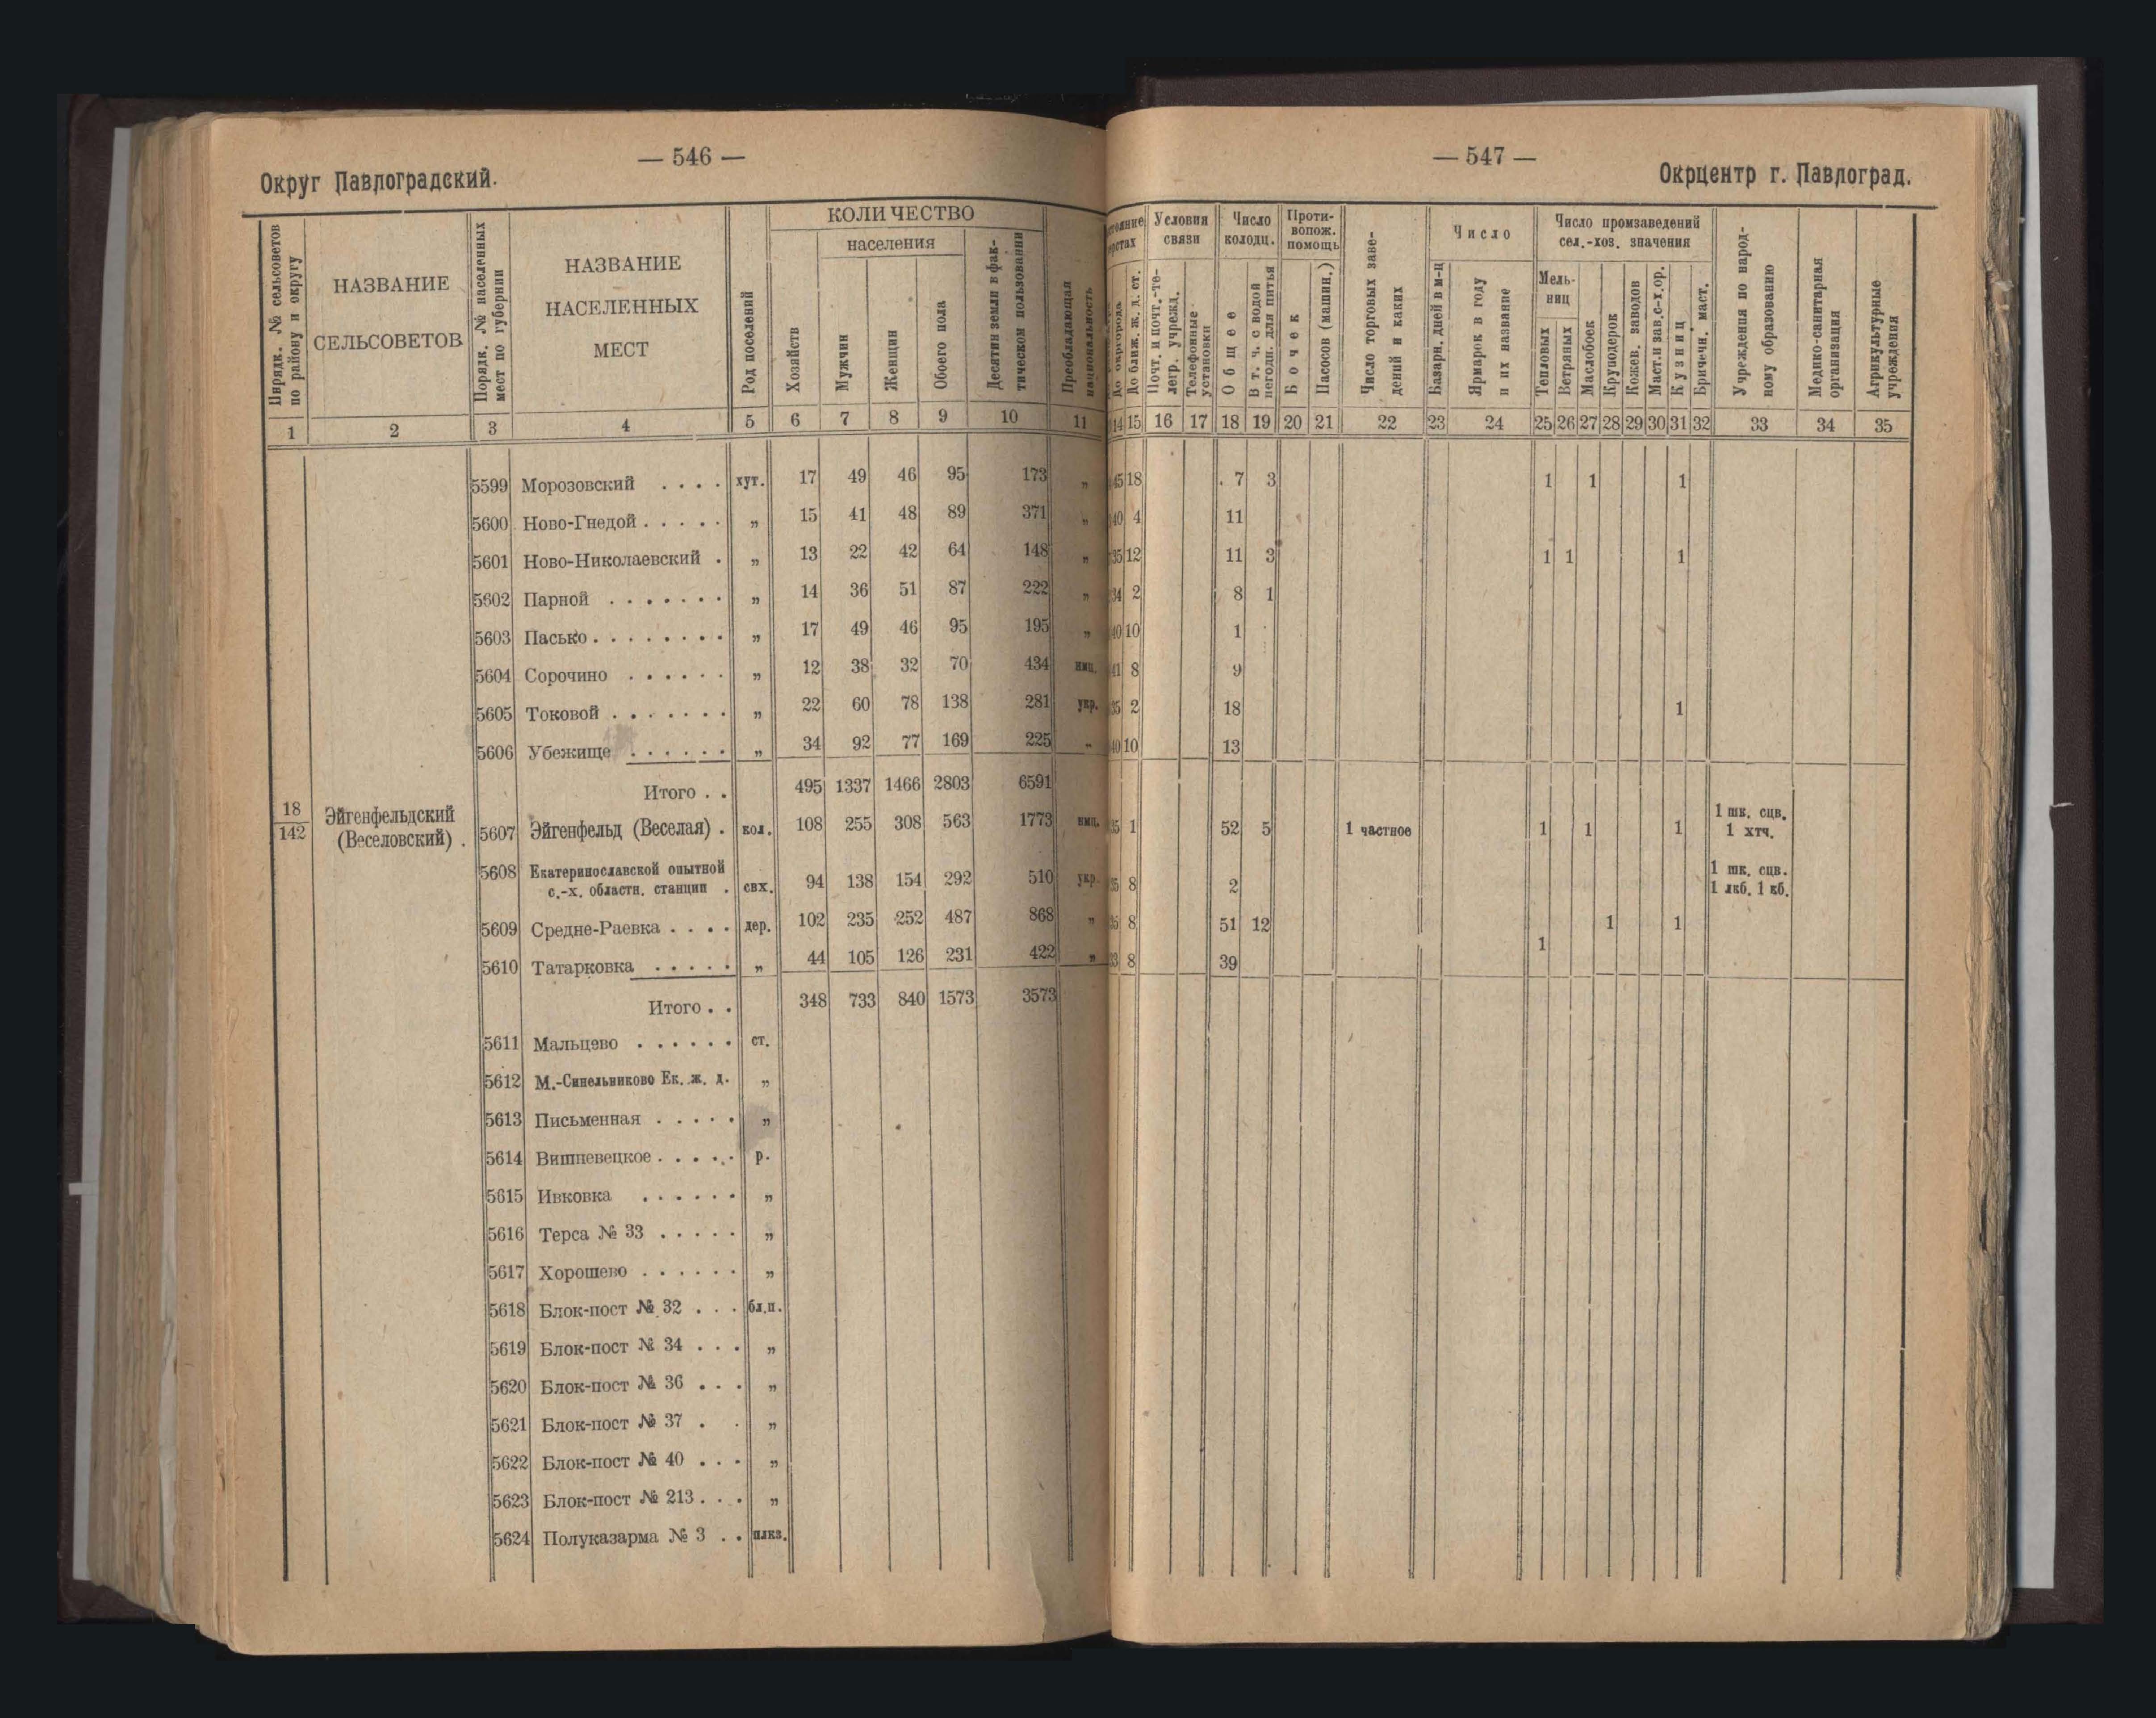 — 546 —
Округ Павлоградский.
Порядк. № сельсоветов по району и округу
НАЗВАНИЕ СЕЛЬСОВЕТОВ
Порядк. № населенных мест по губернии
НАЗВАНИЕ НАСЕЛЕННЫХ МЕСТ
Род поселений
КОЛИЧЕСТВО
Хозяйств
населения
Мужчин
Женщин
Обоего пола
Десятин земли в фактическом пользовании
Преобладающая национальность
1 2 3 4 5 6 7 8 9 10 11
5599 Морозовский . . . . хут. 17 49 46 95 173 „
5600 Ново-Гнедой . . . . . „ 15 41 48 89 371 „
5601 Ново-Николаевский . „ 13 22 42 64 148 „
5602 Парной . . . . . . . „ 14 36 51 87 222 „
5603 Пасько . . . . . . . . „ 17 49 46 95 195 „
5604 Сорочино . . . . . . „ 12 38 32 70 434 нмц.
5605 Токовой . . . . . . . „ 22 60 78 138 281 укр.
5606 Убежище . . . . . . „ 34 92 77 169 225 „
Итого . . 495 1337 1466 2803 6591
18/142 Эйгенфельдский (Веселовский) . 5607 Эйгенфельд (Веселая) . кол. 108 255 308 563 1773 нмц.
5608 Екатеринославской опытной
с.-х. областн. станции . свх. 94 138 154 292 510 укр.
5609 Средне-Раевка . . . . дер. 102 235 252 487 868 „
5610 Татарковка . . . . . „ 44 105 126 231 422 „
Итого . . 348 733 840 1573 3573
5611 Мальцево . . . . . . ст.
5612 М.-Синельниково Ек. ж. д. „
5613 Письменная . . . . . „
5614 Вишневецкое . . . . . р.
5615 Ивковка . . . . . . „
5616 Терса № 33 . . . . . „
5617 Хорошево . . . . . . „
5618 Блок-пост № 32 . . . бл.п.
5619 Блок-пост № 34 . . . „
5620 Блок-пост № 36 . . . „
5621 Блок-пост № 37 . . „
5622 Блок-пост № 40 . . . „
5623 Блок-пост № 213 . . . „
5624 Полуказарма № 3 . . плкз.
— 547 —
Окрцентр г. Павлоград.
До окргорода
До ближ. ж. д. ст.
Условия связи
Почт. и почт.-телегр. учрежд.
Телефонные установки
Число колодц.
Общее
В т. ч. с водой негодн. для питья
Противопож. помощь
Бочек
Насосов (машин.)
Число торговых заведений и каких
Число
Базарн. дней в м-ц
Ярмарок в году и их название
Число промзаведений сел.-хоз. значения
Мельниц
Тепловых
Ветряных
Маслобоек
Круподерок
Кожев. заводов
Маст. и зав. с-х. ор.
Кузниц
Бричечн. маст.
Учреждения по народному образованию
Медико-санитарная организация
Агрикультурные учреждения
14 15 16 17 18 19 20 21 22 23 24 25 26 27 28 29 30 31 32 33 34 35
45 18 7 3 1 1 1
40 4 11
35 12 11 3 1 1 1
34 2 8 1
40 10 1
41 8 9
35 2 18 1
40 10 13
35 1 52 5 1 частное 1 1 1 1 шк. сцв. 1 хтч.
35 8 2 1 шк. сцв. 1 лкб. 1 кб.
35 8 51 12 1 1
33 8 39 1